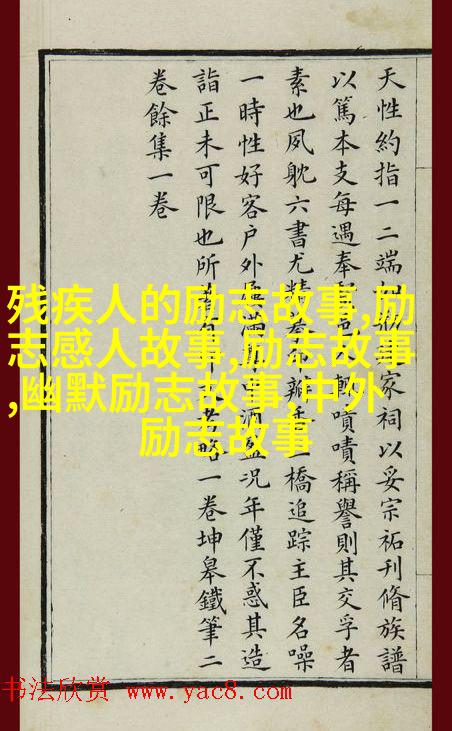 天性約指一二端家祠以妥宗祏刊脩族譜
以篤本支每遇奉嘖嘖稱譽則其交孚者
素也夙躭六書尤精橋追踪主臣名噪
一時性好客户外況年僅不惑其造
詣正未可限也所略一卷坤皋鐵筆二
卷餘集一卷
残疾人的励志故事,励
志感人故事,励志故事
,幽默励志故事,中外
励志故事
书法欣赏 www.yac8.com